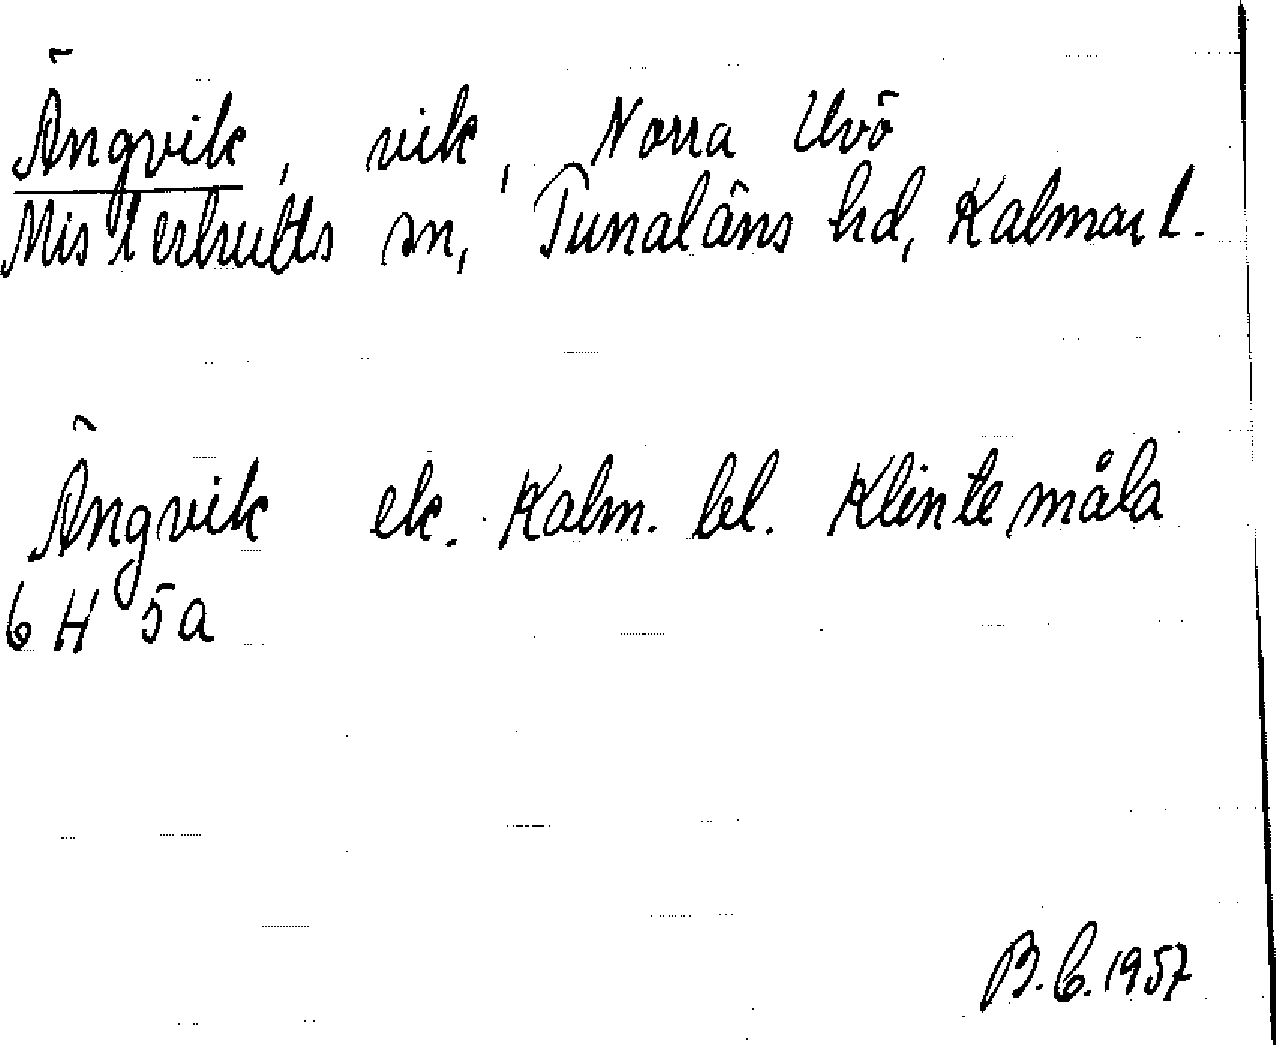 Ängvik, vik, Norra Uvö
Misterhults sn, Tunaläns hd, Kalmar l.
Ängvik ek. Kalm. bl. Klintemåla
6 H 5a
B.E. 1957